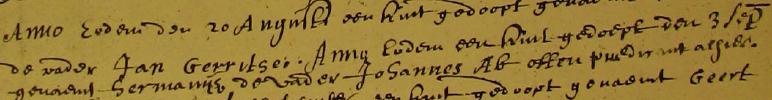 Anno Eodem den 20 Augusti een kint gedoopt genaemt
de vader Jan Gerritsen. Anno Eodem een kint gedoept den 3 Sept
genaemt Hermannus de vader Johannes Ab
een kint gedoopt genaemt Geert